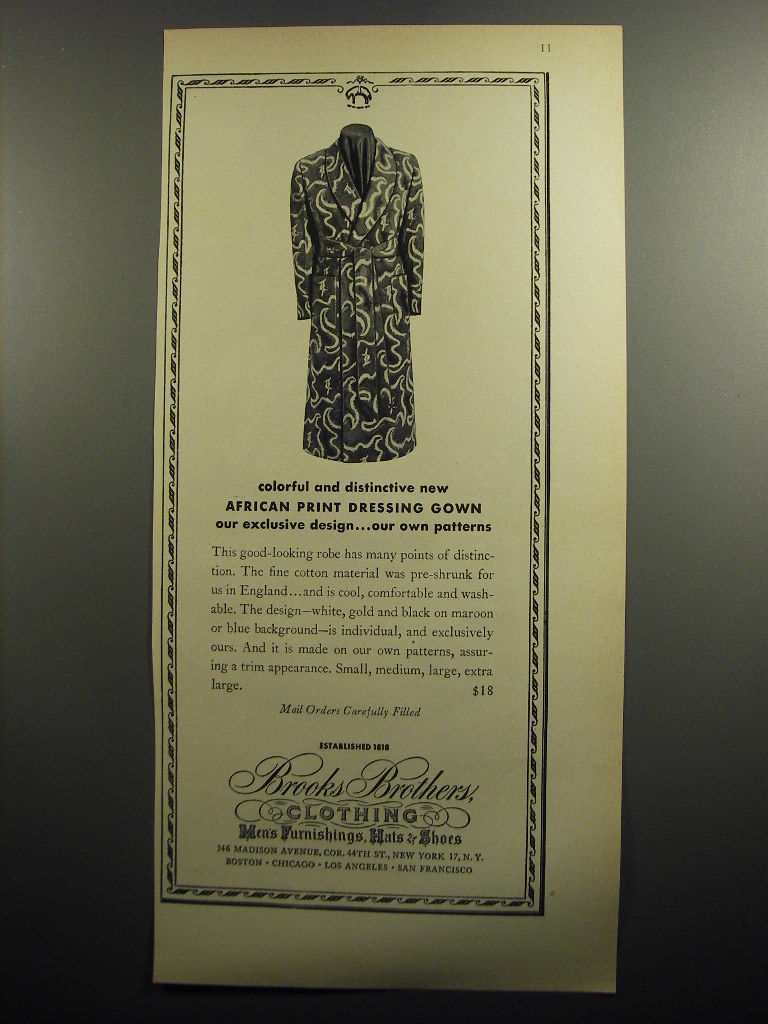 11
colorful and distinctive new
AFRICAN PRINT DRESSING GOWN
our exclusive design...our own patterns
This good-looking robe has many points of distinc-
tion. The fine cotton material was pre-shrunk for
us in England...and is cool, comfortable and wash-
able. The design—white, gold and black on maroon
or blue background—is individual, and exclusively
ours. And it is made on our own patterns, assur-
ing a trim appearance. Small, medium, large, extra
large. $18
Mail Orders Carefully Filled
ESTABLISHED 1818
Brooks Brothers,
CLOTHING
Men's Furnishings, Hats & Shoes
346 MADISON AVENUE, COR. 44TH ST., NEW YORK 17, N. Y.
BOSTON • CHICAGO • LOS ANGELES • SAN FRANCISCO